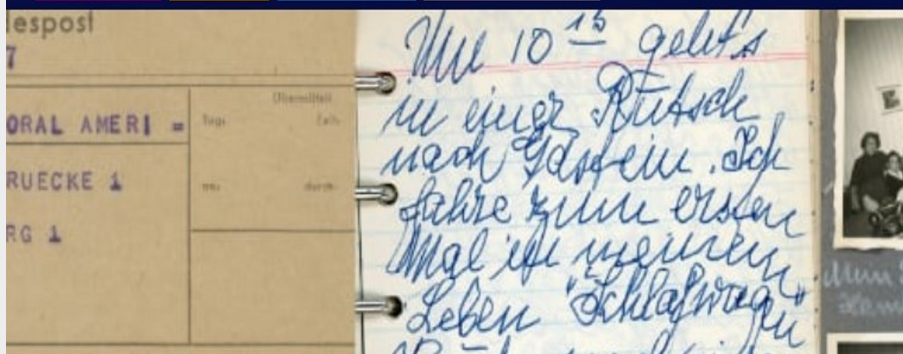 lespost
7
ORAL AMERI =
RUECKE 1
RG 1
Übermittelt
Tag:
Zeit:
an:
durch:
Um 10 15 geht's
in einer Rutsch
nach Gastein. Ich
fahre zum ersten
Mal in meinem
Leben "Schlafwagen"